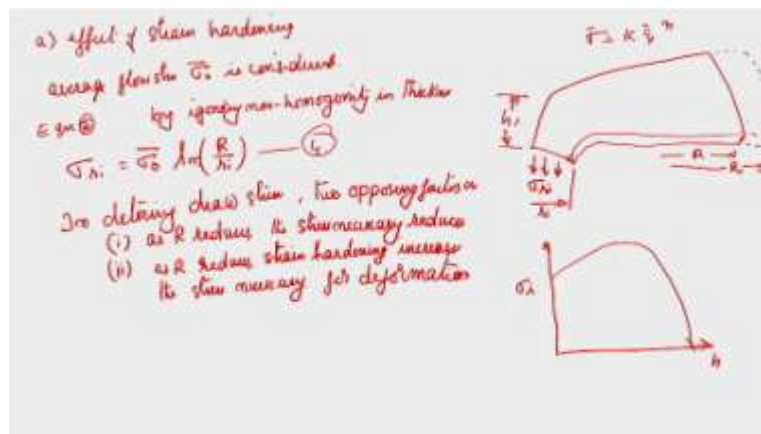 a) effect of strain hardening
average flow stress σ̄₀ is considered
by ignoring non-homogenity in thickness
Eqn ②
σri = σ̄₀ ln(R/ri) —
In detering draw stress, two opposing factors
(i) as R reduces the stress necessary reduces
(ii) as R reduces strain hardening increase
the stress necessary for deformation
σ̄ = K ε̄ ⁿ
h₁
σri
ri
R
R₀
h